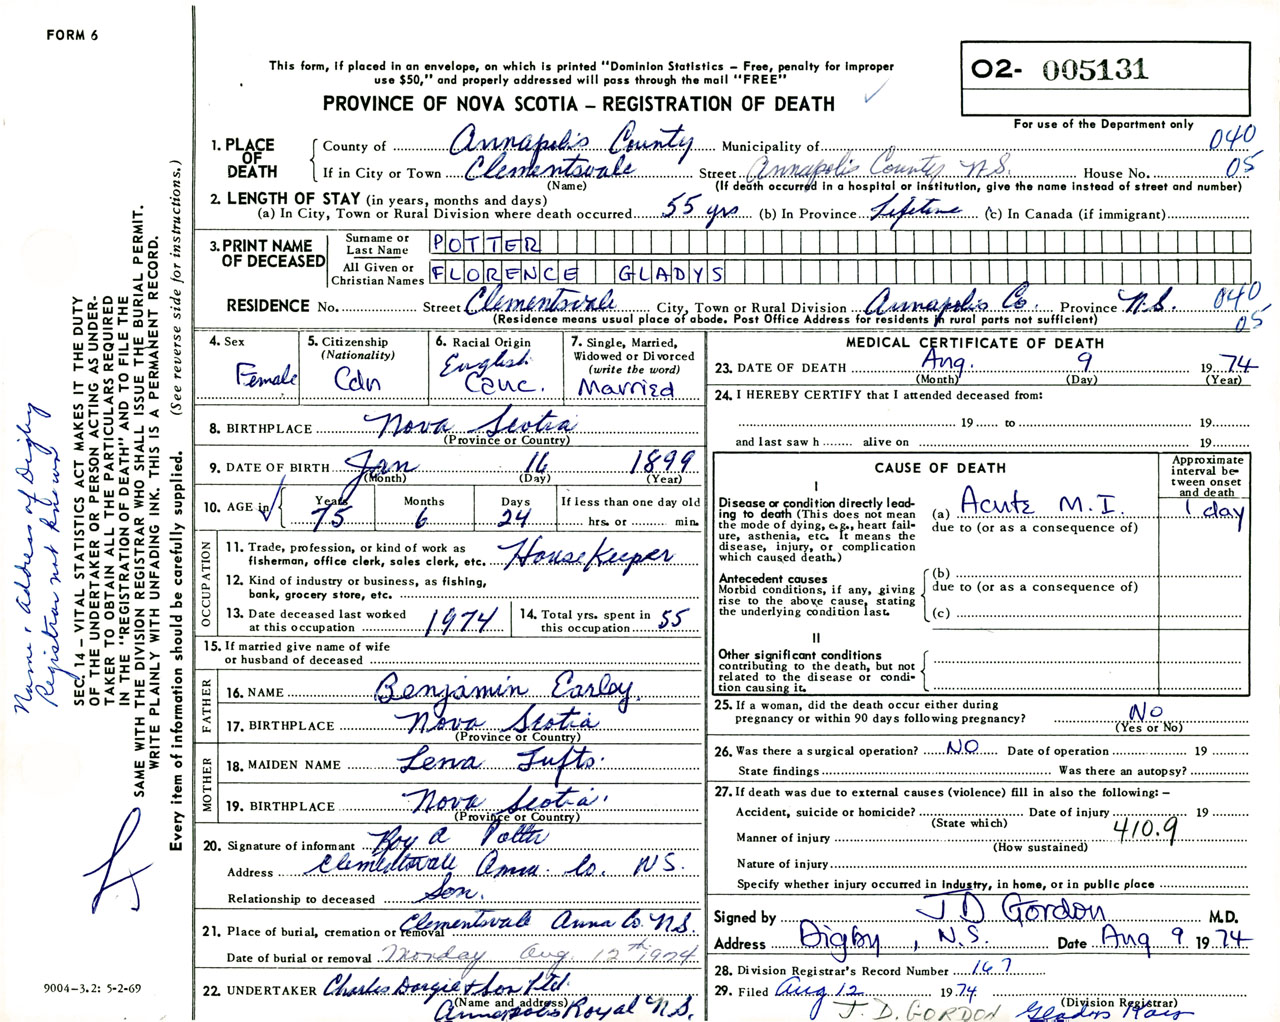 FORM 6
This form, if placed in an envelope, on which is printed "Dominion Statistics – Free, penalty for improper
use $50," and properly addressed will pass through the mail "FREE"
PROVINCE OF NOVA SCOTIA – REGISTRATION OF DEATH
O2- 005131
For use of the Department only
1. PLACE OF DEATH
County of Annapolis County Municipality of 040
If in City or Town Clementsvale Street Annapolis County N.S. House No. 05
(Name) (If death occurred in a hospital or institution, give the name instead of street and number)
2. LENGTH OF STAY (in years, months and days)
(a) In City, Town or Rural Division where death occurred 55 yrs (b) In Province Lifetime (c) In Canada (if immigrant)
3. PRINT NAME OF DECEASED
Surname or Last Name POTTER
All Given or Christian Names FLORENCE GLADYS
RESIDENCE No. Street Clementsvale City, Town or Rural Division Annapolis Co Province N.S. 040
(Residence means usual place of abode. Post Office Address for residents in rural parts not sufficient) 05
4. Sex Female
5. Citizenship (Nationality) Cdn
6. Racial Origin English Cauc.
7. Single, Married, Widowed or Divorced (write the word) Married
8. BIRTHPLACE Nova Scotia
(Province or Country)
9. DATE OF BIRTH Jan 16 1899
(Month) (Day) (Year)
10. AGE in Years 75 Months 6 Days 24 If less than one day old hrs. or min.
OCCUPATION
11. Trade, profession, or kind of work as
fisherman, office clerk, sales clerk, etc. HouseKeeper
12. Kind of industry or business, as fishing,
bank, grocery store, etc.
13. Date deceased last worked
at this occupation 1974
14. Total yrs. spent in
this occupation 55
15. If married give name of wife
or husband of deceased
FATHER
16. NAME Benjamin Earley
17. BIRTHPLACE Nova Scotia
(Province or Country)
MOTHER
18. MAIDEN NAME Lena Tufts.
19. BIRTHPLACE Nova Scotia.
(Province or Country)
20. Signature of informant Roy A Potter
Address Clementsvale Anna. Co. N.S.
Relationship to deceased Son.
21. Place of burial, cremation or removal Clementsvale Anna Co. N.S.
Date of burial or removal Monday Aug. 12th 1974
22. UNDERTAKER Charles Dargie & Son Ltd.
(Name and address) Annapolis Royal N.S.
MEDICAL CERTIFICATE OF DEATH
23. DATE OF DEATH Aug. 9 1974
(Month) (Day) (Year)
24. I HEREBY CERTIFY that I attended deceased from:
19 to 19
and last saw h alive on 19
CAUSE OF DEATH
Approximate interval between onset and death
I
Disease or condition directly lead-
ing to death (This does not
mean the mode of dying, e.g., heart fail-
ure, asthenia, etc. It means the
disease, injury, or complication
which caused death.)
(a) Acute M.I. 1 day
due to (or as a consequence of)
Antecedent causes
Morbid conditions, if any, giving
rise to the above cause, stating
the underlying condition last.
(b)
due to (or as a consequence of)
(c)
II
Other significant conditions
contributing to the death, but not
related to the disease or condi-
tion causing it.
25. If a woman, did the death occur either during
pregnancy or within 90 days following pregnancy? No
(Yes or No)
26. Was there a surgical operation? NO Date of operation 19
State findings Was there an autopsy?
27. If death was due to external causes (violence) fill in also the following: –
Accident, suicide or homicide? Date of injury 19
(State which)
Manner of injury 410.9
(How sustained)
Nature of injury
Specify whether injury occurred in industry, in home, or in public place
Signed by J D Gordon M.D.
Address Digby, N.S. Date Aug 9 1974
28. Division Registrar's Record Number 167
29. Filed Aug 12 1974
(Division Registrar)
J. D. GORDON Gladys
SEC. 14 – VITAL STATISTICS ACT MAKES IT THE DUTY
OF THE UNDERTAKER OR PERSON ACTING AS UNDER-
TAKER TO OBTAIN ALL THE PARTICULARS REQUIRED
IN THE "REGISTRATION OF DEATH" AND TO FILE THE
SAME WITH THE DIVISION REGISTRAR WHO SHALL ISSUE THE BURIAL PERMIT.
WRITE PLAINLY WITH UNFADING INK. THIS IS A PERMANENT RECORD.
Every item of information should be carefully supplied. (See reverse side for instructions.)
Name & Address of Digby
Registrar not known
9004-3.2: 5-2-69